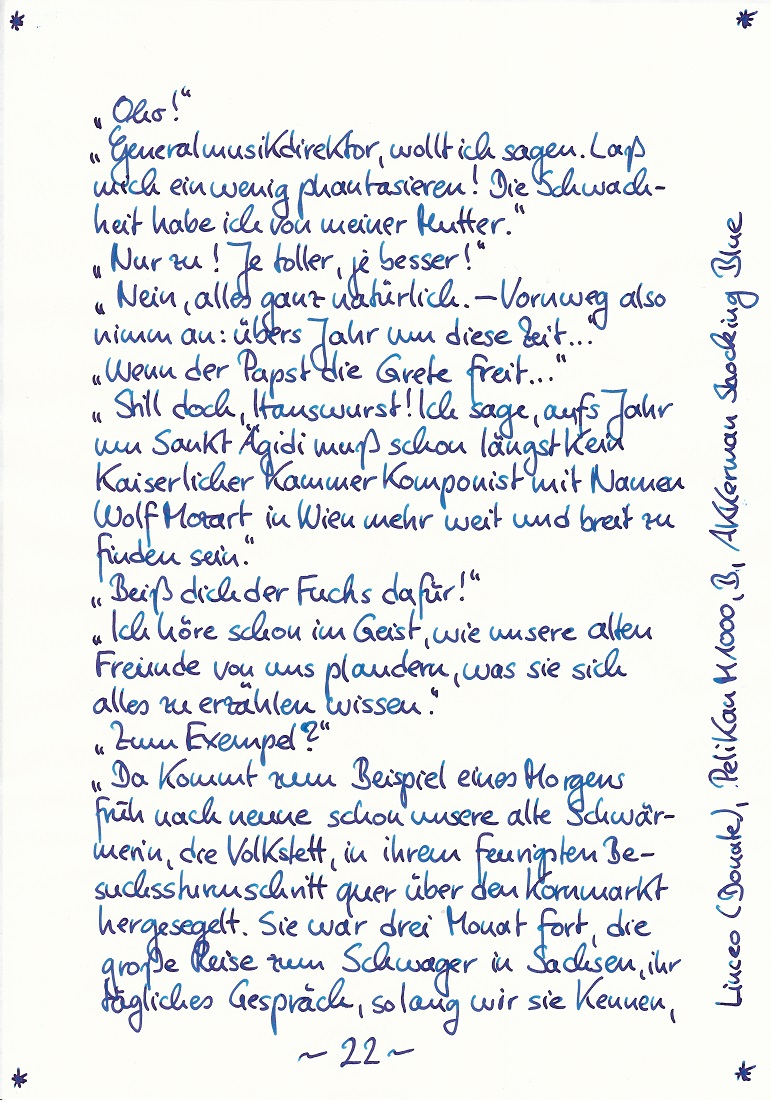 „Oho!“
„Generalmusikdirektor, wollt ich sagen. Laß
mich ein wenig phantasieren! Die Schwach-
heit habe ich von meiner Mutter.“
„Nur zu! Je toller, je besser!“
„Nein, alles ganz natürlich. – Vornweg also
nimm an: übers Jahr um diese Zeit...“
„Wenn der Papst die Grete freit...“
„Still doch, Hanswurst! Ich sage, aufs Jahr
um Sankt Ägidi muß schon längst kein
Kaiserlicher Kammerkomponist mit Namen
Wolf Mozart in Wien mehr weit und breit zu
finden sein.“
„Beiß dich der Fuchs dafür!“
„Ich höre schon im Geist, wie unsere alten
Freunde von uns plaudern, was sie sich
alles zu erzählen wissen.“
„Zum Exempel?“
„Da kommt zum Beispiel eines Morgens
früh nach neune schon unsere alte Schwär-
merin, die Volkstett, in ihrem feurigsten Be-
suchssturmschritt quer über den Kornmarkt
hergesegelt. Sie war drei Monat fort, die
große Reise zum Schwager in Sachsen, ihr
tägliches Gespräch, solang wir sie kennen,
~ 22 ~
Linceo (Donate), Pelikan M1000, B, Akkerman Shocking Blue